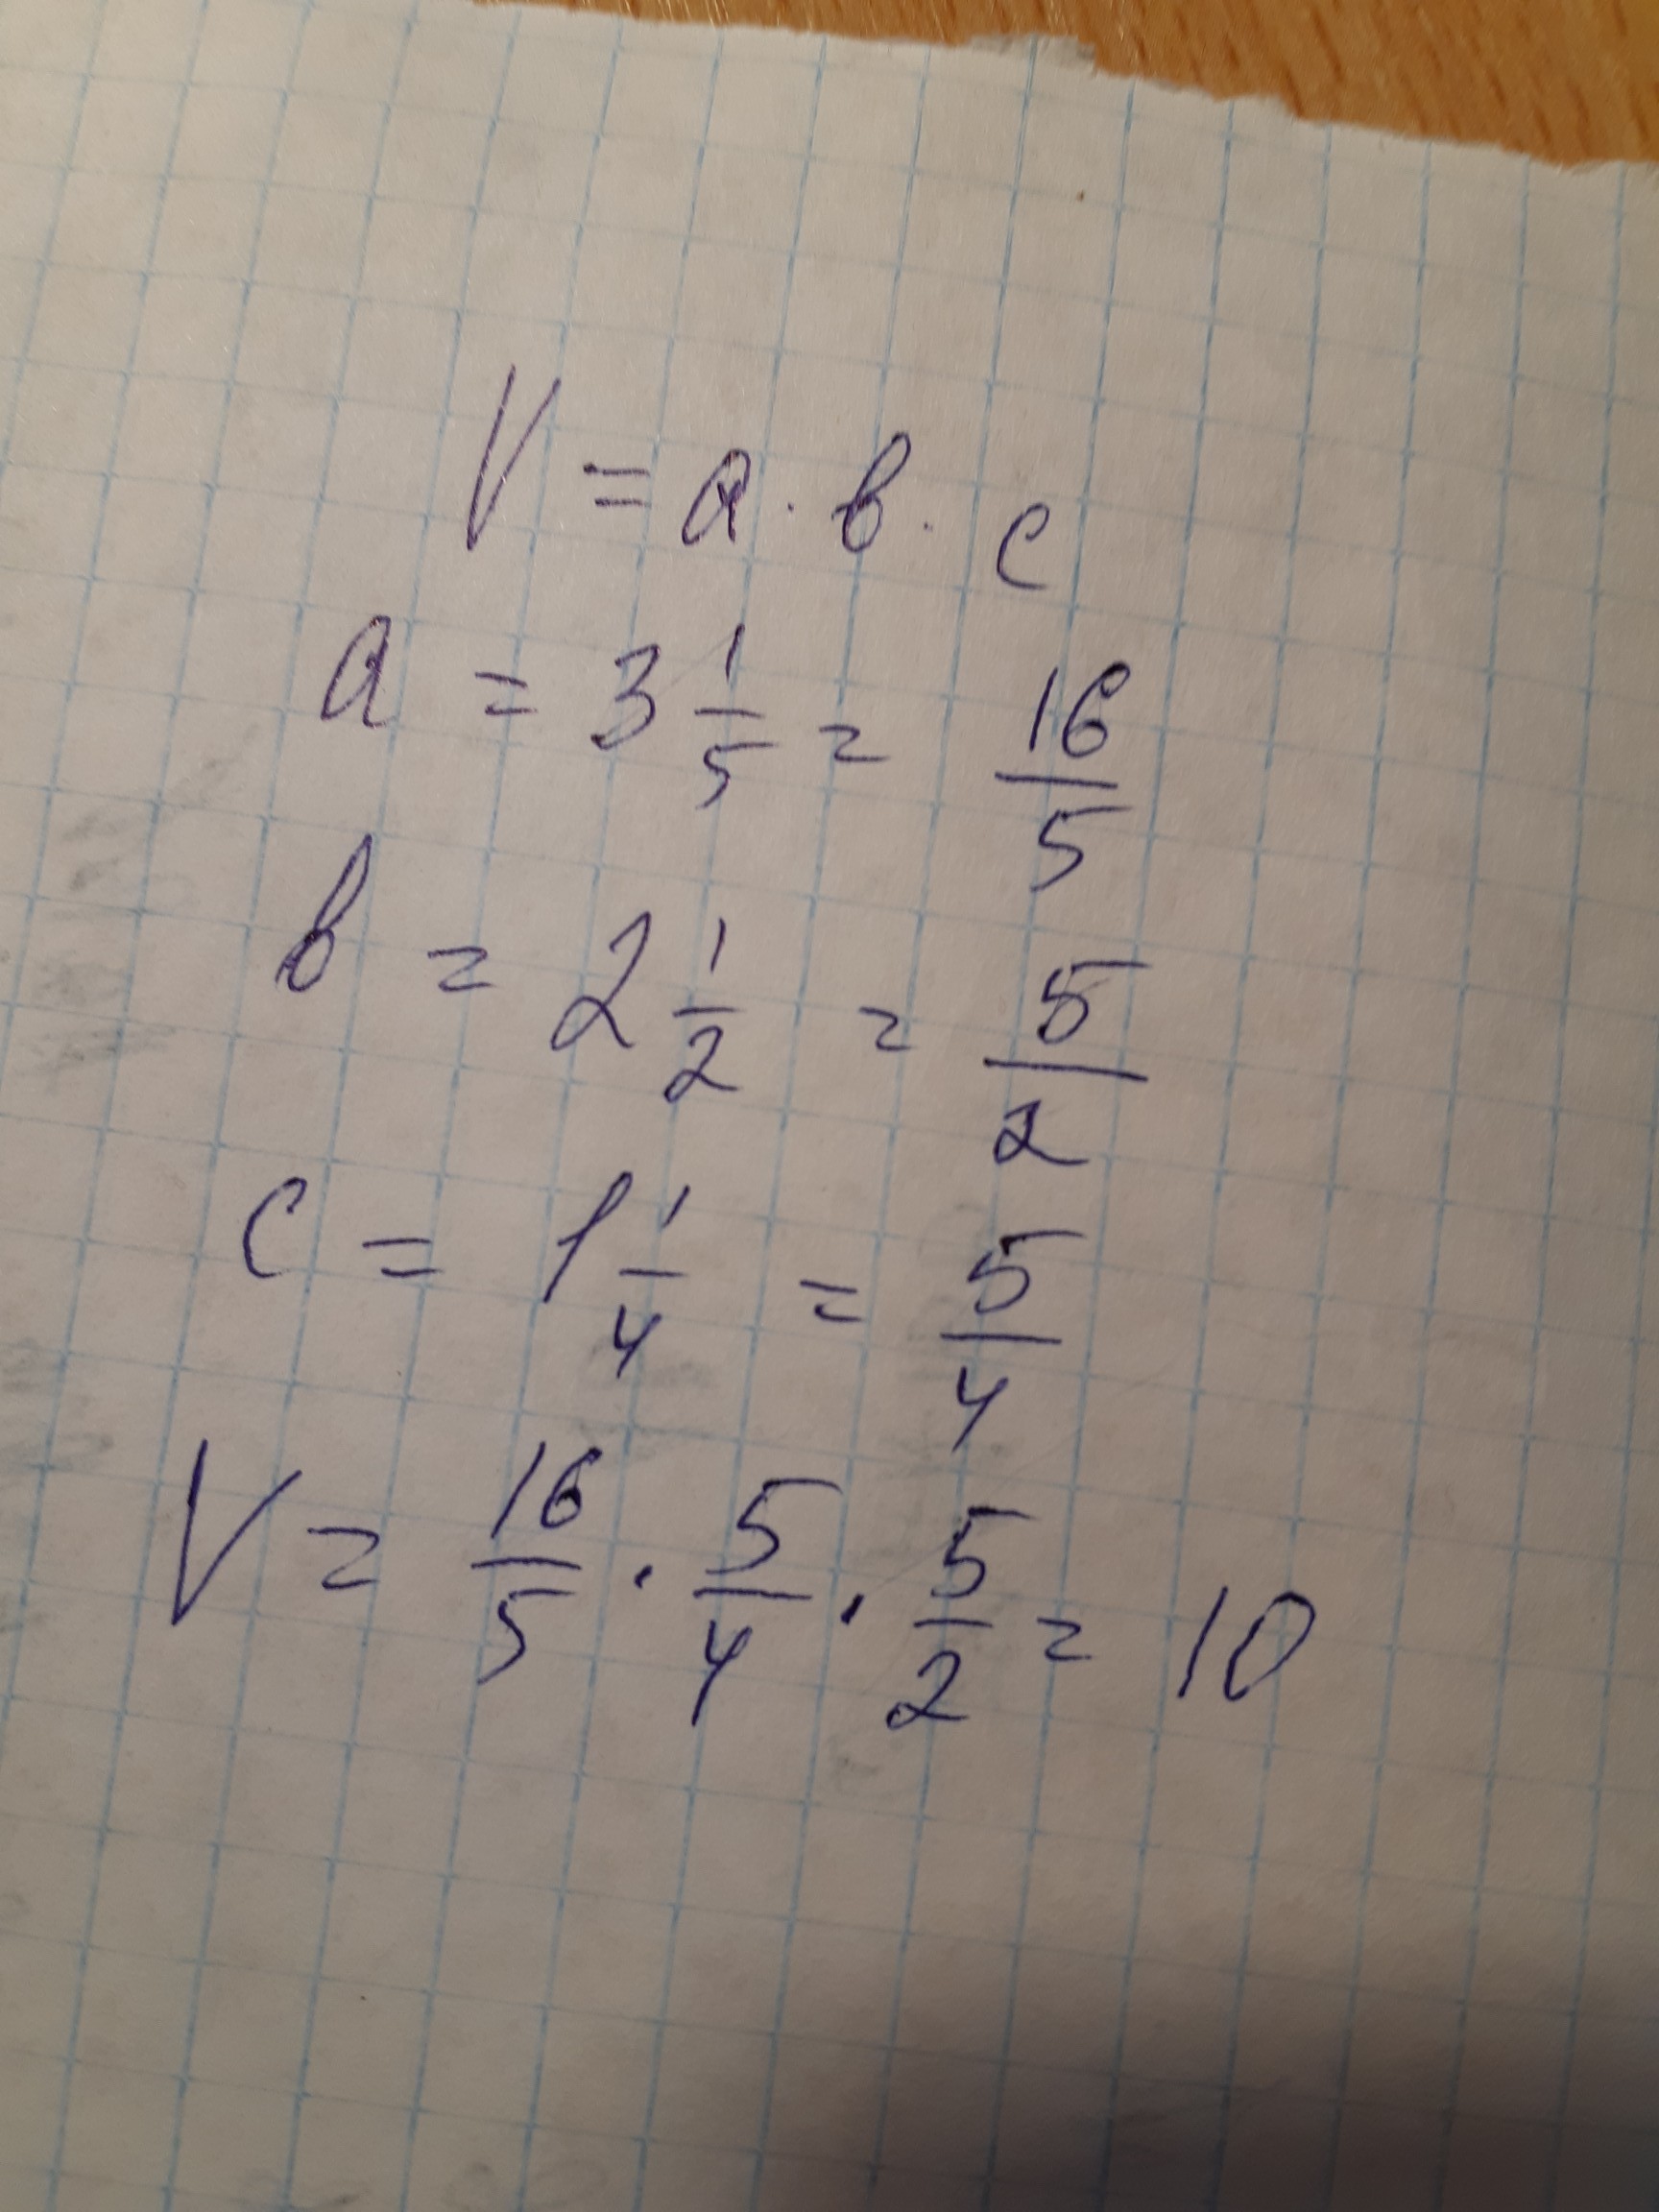 V = a · b · c
a = 3 1/5 = 16/5
b = 2 1/2 = 5/2
c = 1 1/4 = 5/4
V = 16/5 · 5/4 · 5/2 = 10